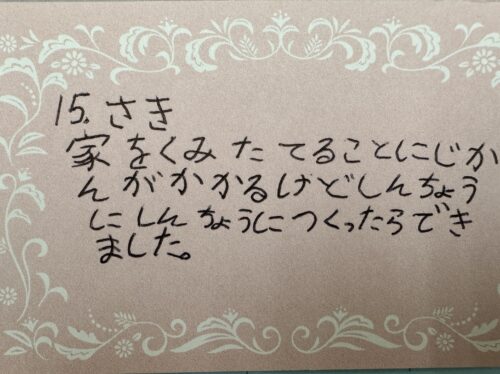 15. さき
家をくみたてることにじか
んがかかるけどしんちょう
にしんちょうにつくったらでき
ました。